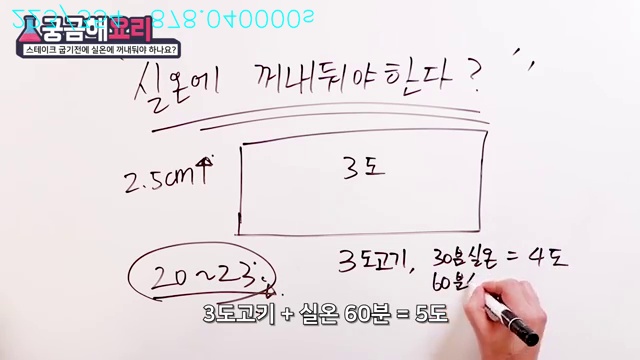 궁금해요리
스테이크 굽기전에 실온에 꺼내둬야 하나요?
실온에 꺼내둬야한다?
2.5cm↑
3도
20~23도
3도고기, 30분실온 = 4도
60분
3도고기 + 실온 60분 = 5도